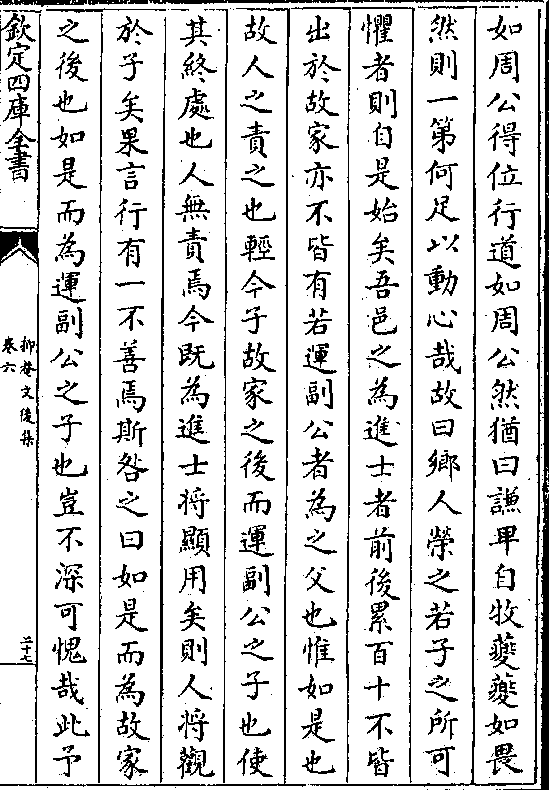 如周公得位行道如周公然猶曰謙卑自牧夔夔如畏
然則一第何足以動心哉故曰鄉人榮之若子之所可
懼者則自是始矣吾邑之為進士者前後累百十不皆
出於故家亦不皆有若運副公者為之父也惟如是也
故人之責之也輕今子故家之後而運副公之子也使
其終處也人無責焉今既為進士將顯用矣則人將觀
於子矣果言行有一不善焉斯咎之曰如是而為故家
之後也如是而為運副公之子也豈不深可愧哉此予
欽定四庫全書
抑菴文後集
卷六
二十七